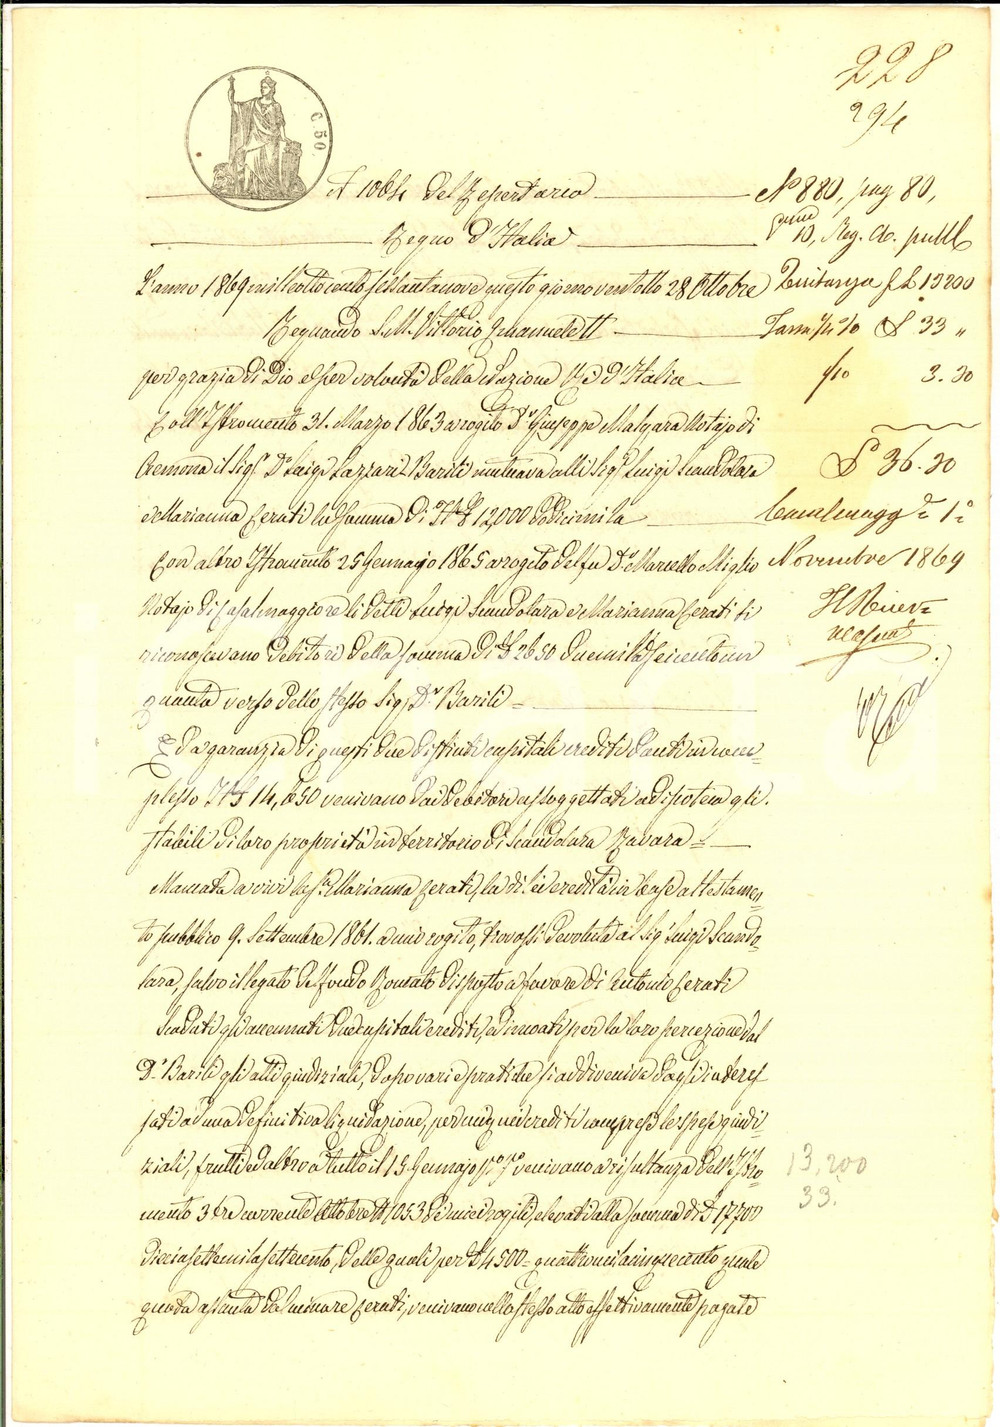 228
294
C. 50.
N 1064 del Repertorio
Regno d'Italia
L'anno 1869 milleottocento sessantanove questo giorno ventotto 28 Ottobre
Regnando S. M. Vittorio Emanuele II
per grazia di Dio e per volontà della Nazione Re d'Italia
Coll'Istromento 31. Marzo 1863 a rogito Dr Giuseppe Malgara Notajo di
Cremona il Sigr Dr Luigi Lazzari Barili mutuava alli Sigri Luigi Scandolara
e Marianna Cerati la somma di It £ 12,000 dodicimila
Con altro Istromento 25 Gennajo 1865 a rogito del fu Dr Marcello Miglio
Notajo di Casalmaggiore li detti Luigi Scandolara e Marianna Cerati si
riconoscevano debitori della somma di £ 2650 duemilaseicentocin
quanta verso dello stesso Sigr Dr Barili =
E da garanzia di questi due distinti capitali crediti danti in com=
plesso It £ 14,650 venivano dai debitori assoggettati ad ipoteca gli
stabili di loro proprietà in territorio di Scandolara Ravara =
Mancata a vivi la Sra Marianna Cerati, la di lei eredità in base al testamen=
to pubblico 9. Settembre 1861. a mio rogito, trovossi devoluta al Sig Luigi Scando=
lara, salvo il legato del fondo disposto a favore di Antonio Cerati
Scaduti gli accennati due capitali crediti, ed incoati per la loro percezione dal
Dr Barili gli atti giudiziali, dopo varie pratiche si addiveniva dagli interes
sati ad una definitiva liquidazione, per cui quei crediti comprese le spese giudi=
ziali, frutti ed altro a tutto il 15 Gennajo venivano a risultanza dell'Istro=
mento 3 tre corrente Ottobre N 1053 de' miei rogiti, elevati alla somma di £ 17700
diecisettemilasettecento, delle quali per £ 4500 = quattromilacinquecento quale
quota assunta dal minore Cerati, venivano nello stesso atto effettivamente pagate
No 880, pag 80,
10, Reg. A. pubbl
£ 13200
Tassa ¼ % £ 33 "
1/10 3. 30
£ 36. 30
Casalmagge 1°
Novembre 1869
Il Ricev=
13,200
33.